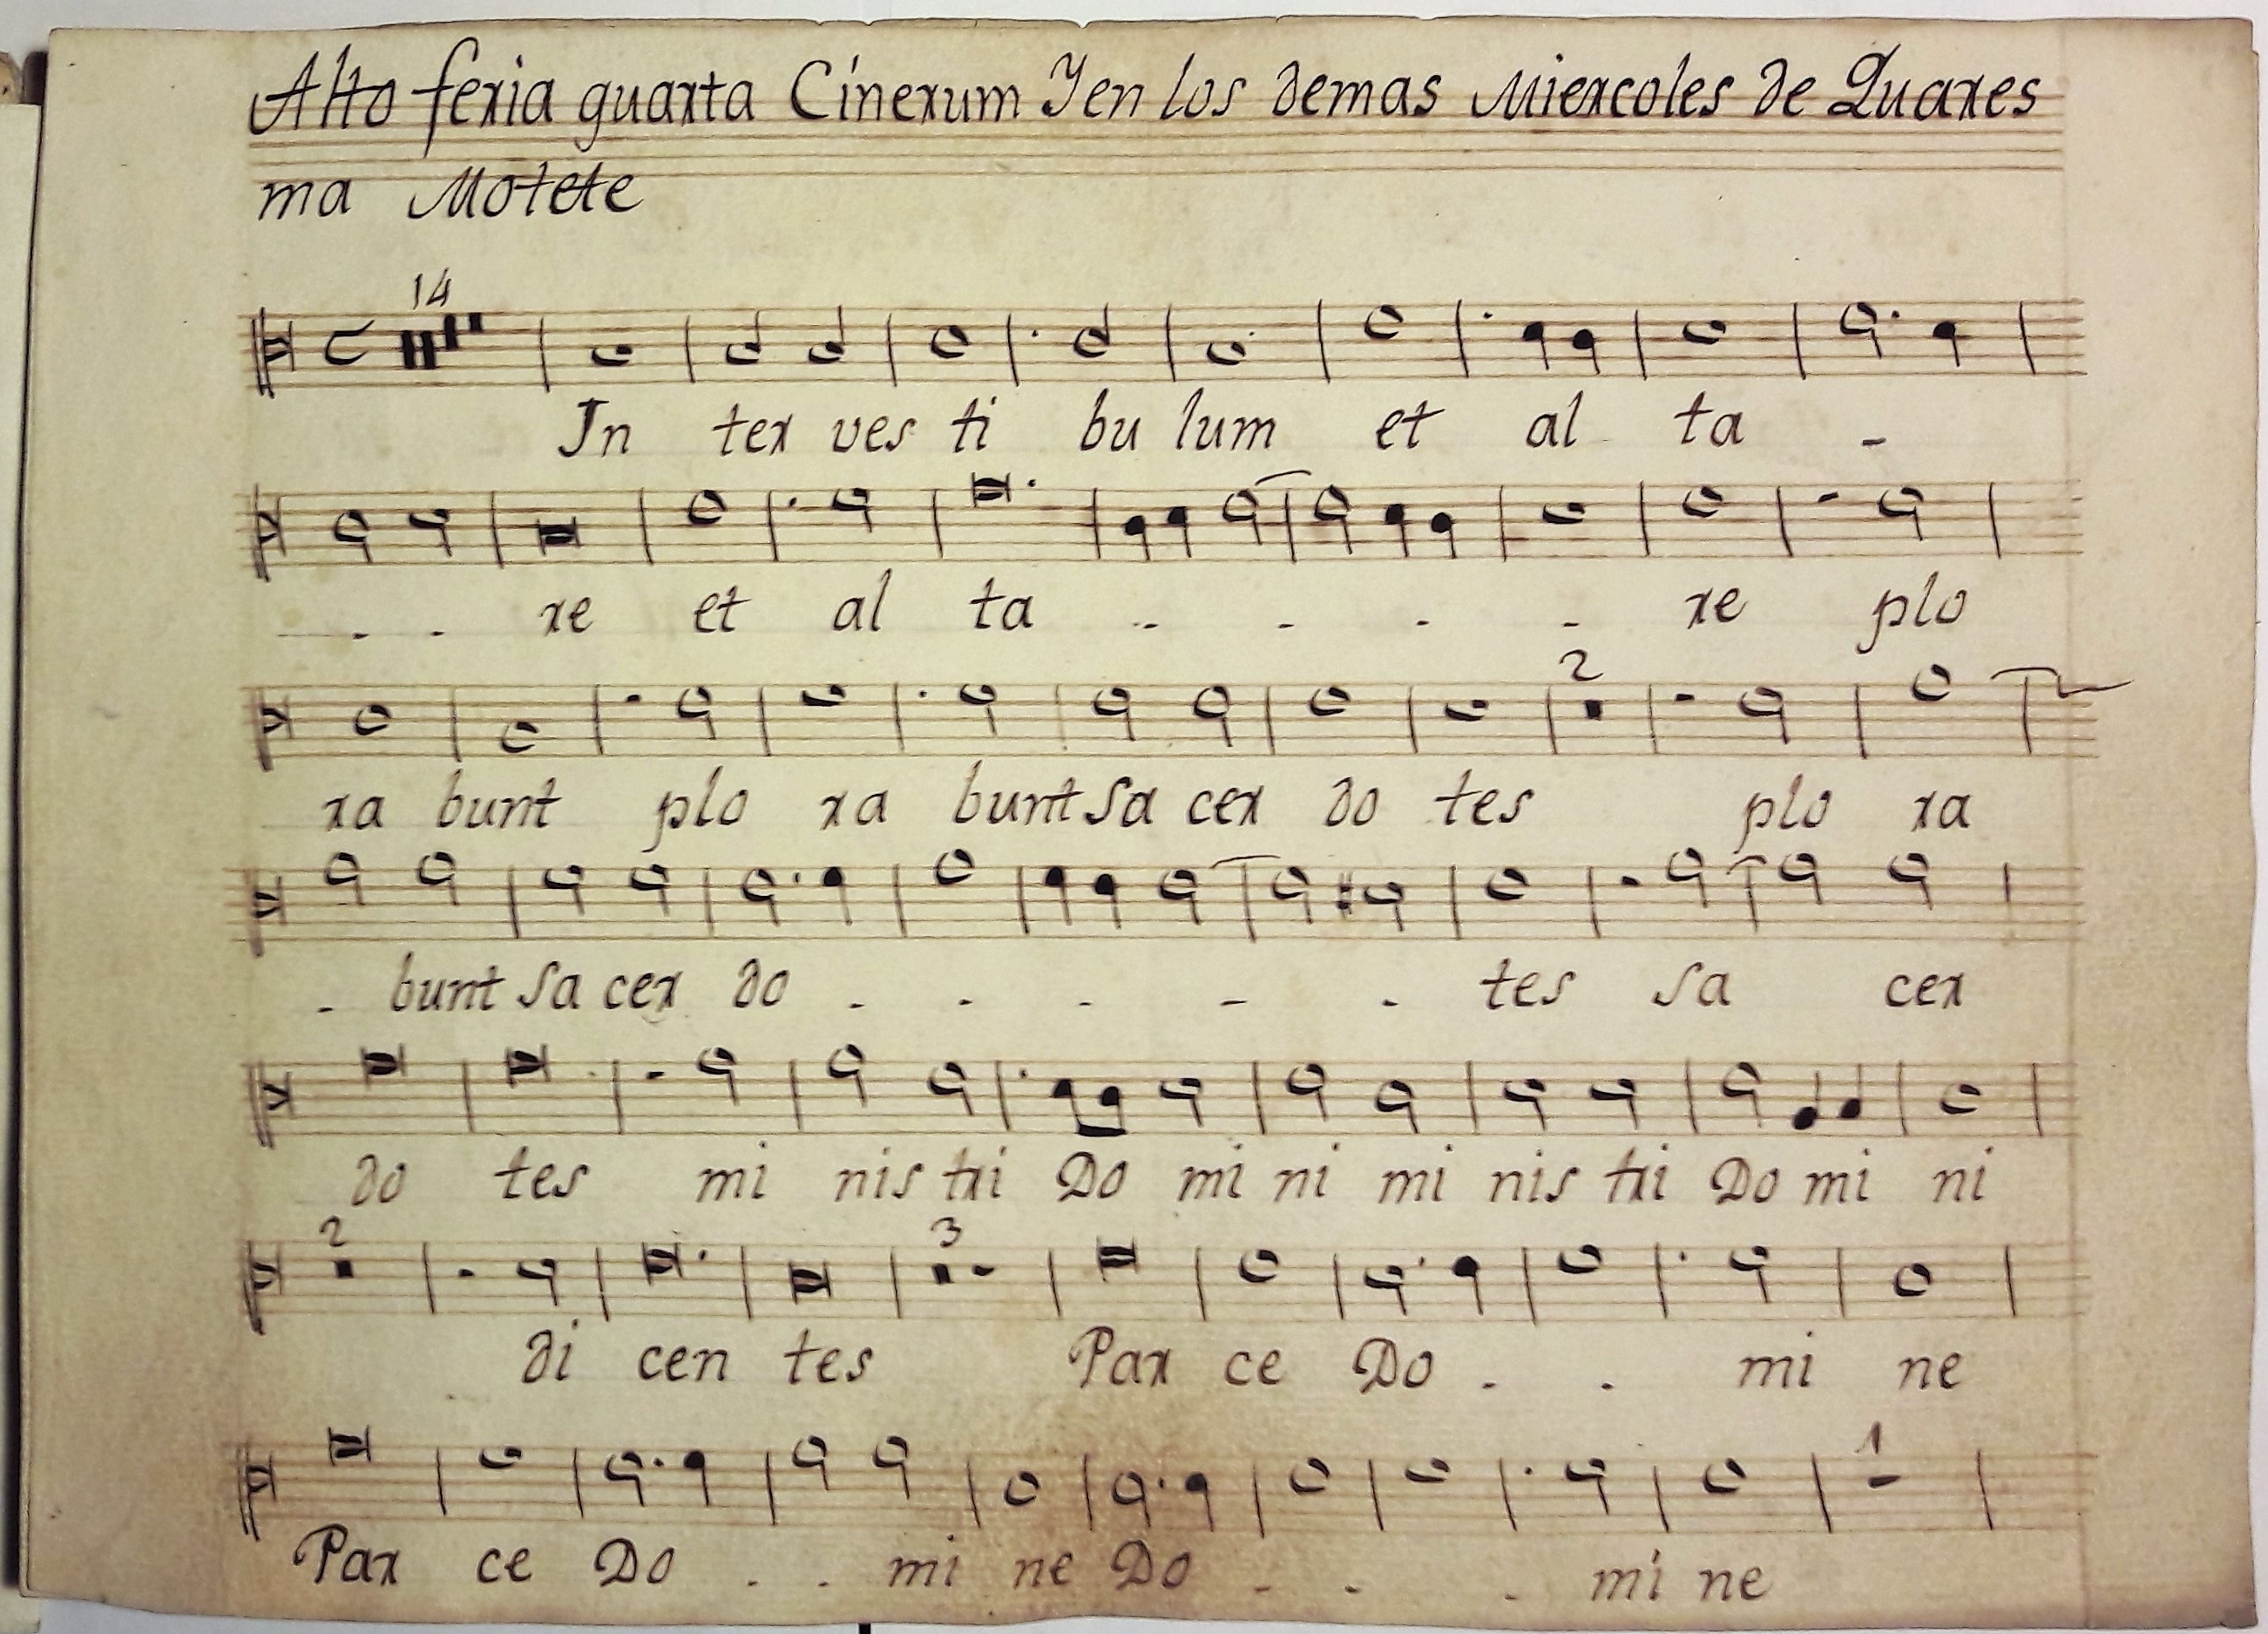 Alto feria quarta Cinerum Y en los demas Miercoles de Quares
ma Motete
14
In ter ves ti bu lum et al ta -
- - re et al ta - - - - re plo
2
ra bunt plo ra bunt Sa cer do tes plo ra
- bunt Sa cer do - - - - - tes Sa cer
do tes mi nis tri Do mi ni mi nis tri Do mi ni
2 3
di cen tes Par ce Do - - mi ne
1
Par ce Do - - mi ne Do - - - mi ne